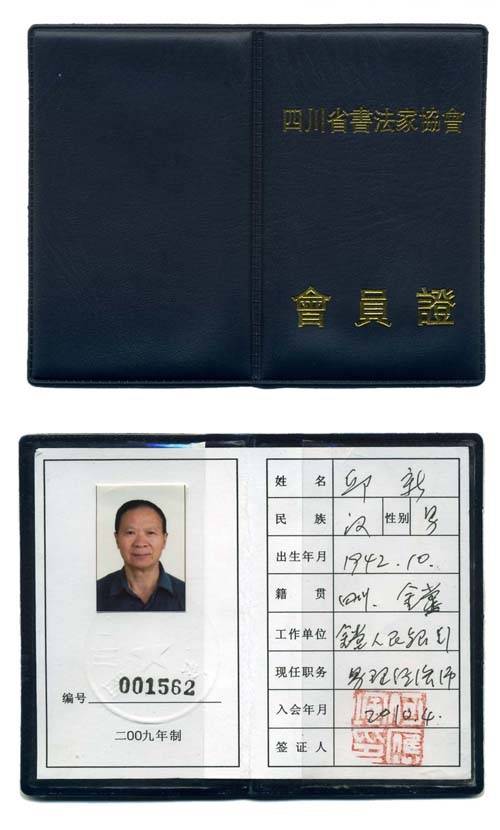 四川省書法家協會
會員證
编号 001562
二00九年制
姓名 邱新
民族 汉 性别 男
出生年月 1942.10.
籍贯 四川. 金堂
工作单位 金堂人民银行
现任职务
入会年月 2010.4.
签证人